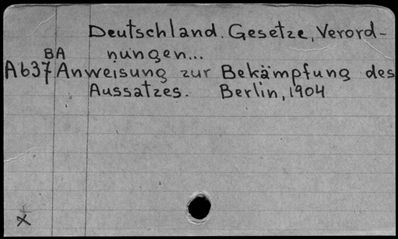 Deutschland. Gesetze, Verord-
BA nungen...
A637 Anweisung zur Bekämpfung des
Aussatzes. Berlin, 1904
x